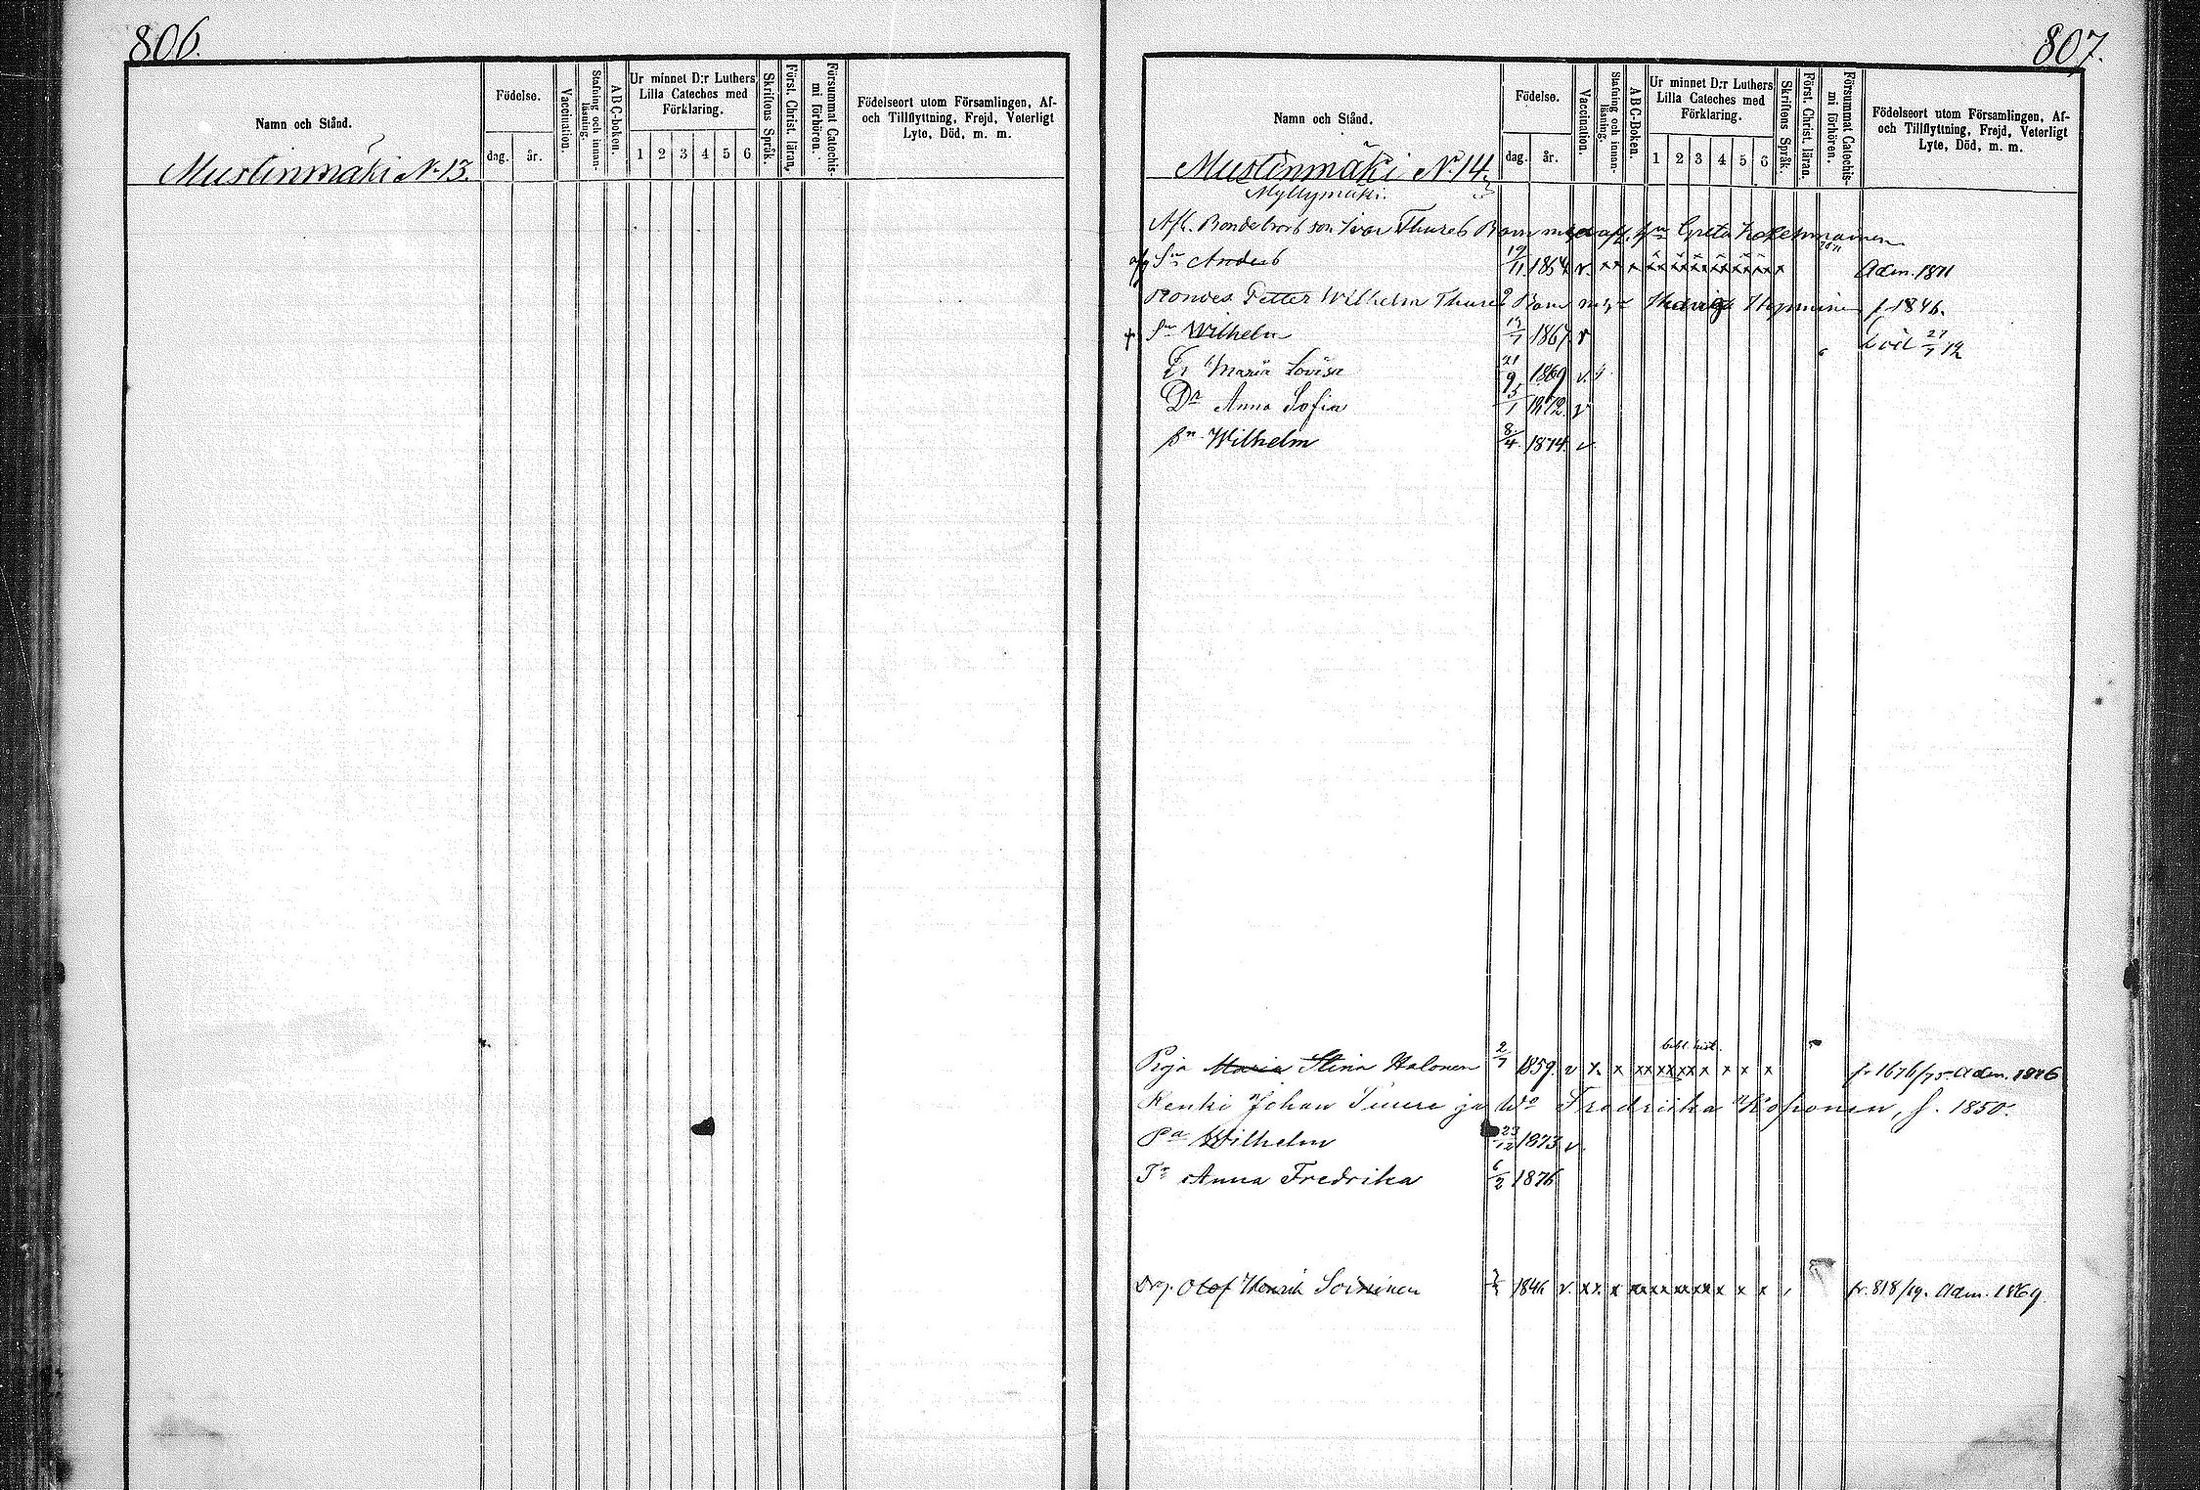 806.
Namn och Stånd.
Födelse.
dag.
år.
Vaccination.
Stafning och innan-
läsning.
ABC-boken.
Ur minnet D:r Luthers
Lilla Cateches med
Förklaring.
1 2 3 4 5 6
Skriftens Språk.
Först. Christ. läran,
Försummat Catechis-
mi förhören.
Födelseort utom Församlingen, Af-
och Tillflyttning, Frejd, Veterligt
Lyte, Död, m. m.
Mustinmäki N. 13.
807.
Namn och Stånd.
Födelse.
dag.
år.
Vaccination.
Stafning och innan-
läsning.
ABC-Boken.
Ur minnet D:r Luthers
Lilla Cateches med
Förklaring.
1 2 3 4 5 6
Skriftens Språk.
Först. Christ. läran.
Försummat Catechis-
mi förhören.
Födelseort utom Församlingen, Af-
och Tillflyttning, Frejd, Veterligt
Lyte, Död, m. m.
Mustinmäki N. 14.
Myllymäki.
Afl. Bondebrors son Ivar Thures Barn med afl. hu Greta Kokehmainen
Sn Anders 19/11 1854 v. xx x Adm. 1871
Bondes Petter Wilhelm Thures Barn med Hedvig f. 1846.
Sn Wilhelm 19/7 1867 v 27/7 72
Maria Lovisa 21/9 1869 v.
Dr Anna Sofia 5/1 1872. v
Sn Wilhelm 8/4 1874. v
bibl. hist.
Piga Maria Stina Halonen 2/7 1859. v x. x xx xx xx x x x x fr 1676/75. Adm. 1876
Renki Johan ja Wo Fredrika Koponen, f. 1850.
Pa Wilhelm 23/12 1873 v.
Tr Anna Fredrika 6/2 1876
Drg. Olof Henrik Soininen 1846 v. xx x xx xx xx xx x x x fr. 818/69. Adm. 1869